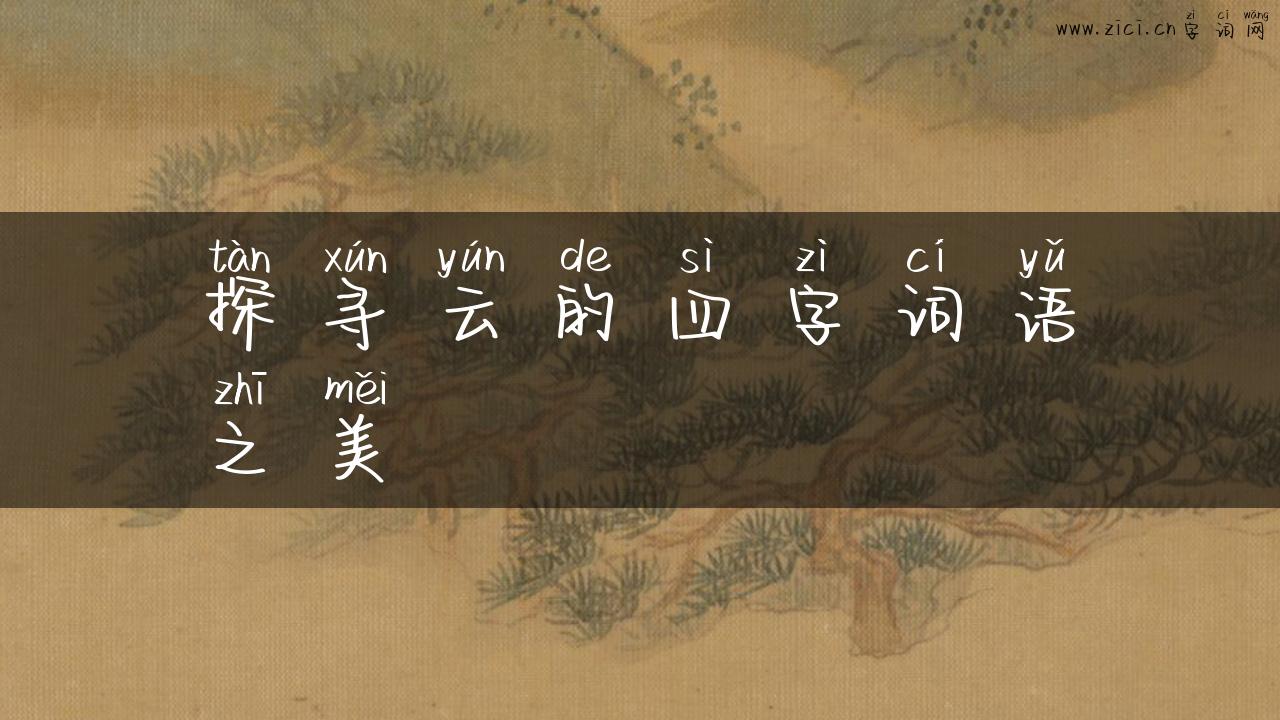 zì cí wǎng
www.zici.cn 字词网
tàn xún yún de sì zì cí yǔ
探寻云的四字词语
zhī měi
之美